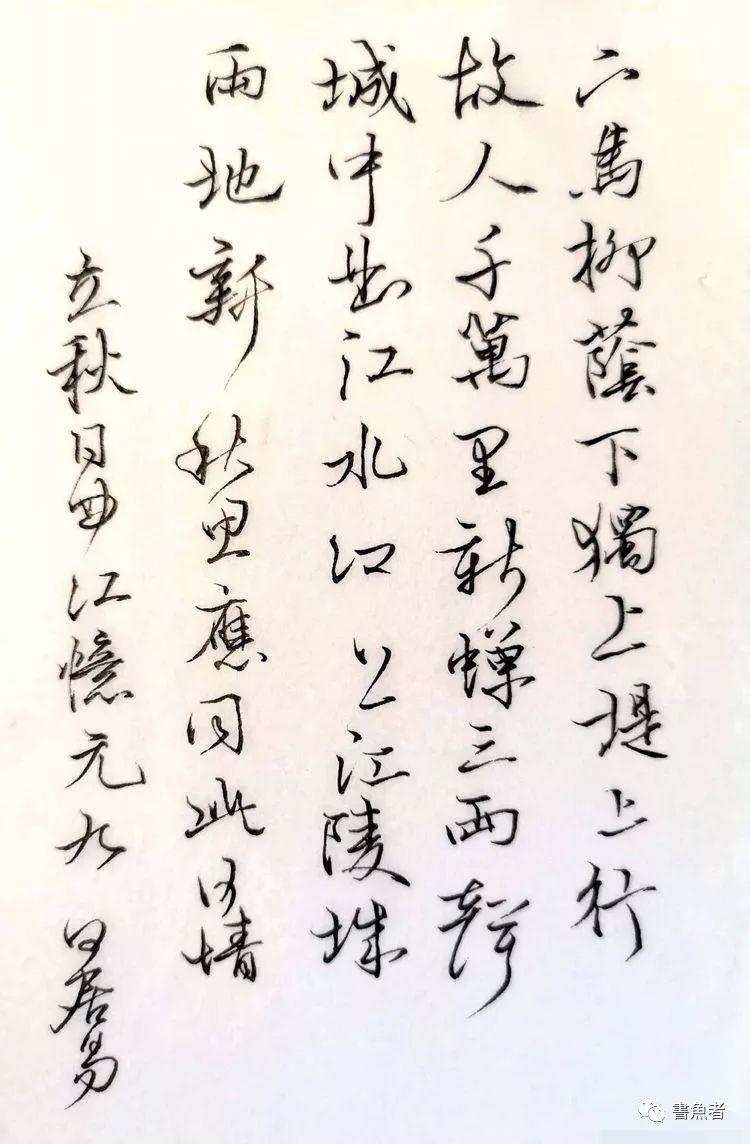 下馬柳蔭下獨上堤上行
故人千萬里新蝉三兩聲
城中曲江水江上江陵城
兩地新秋思應同此日情
立秋日曲江憶元九 白居易
書魚者